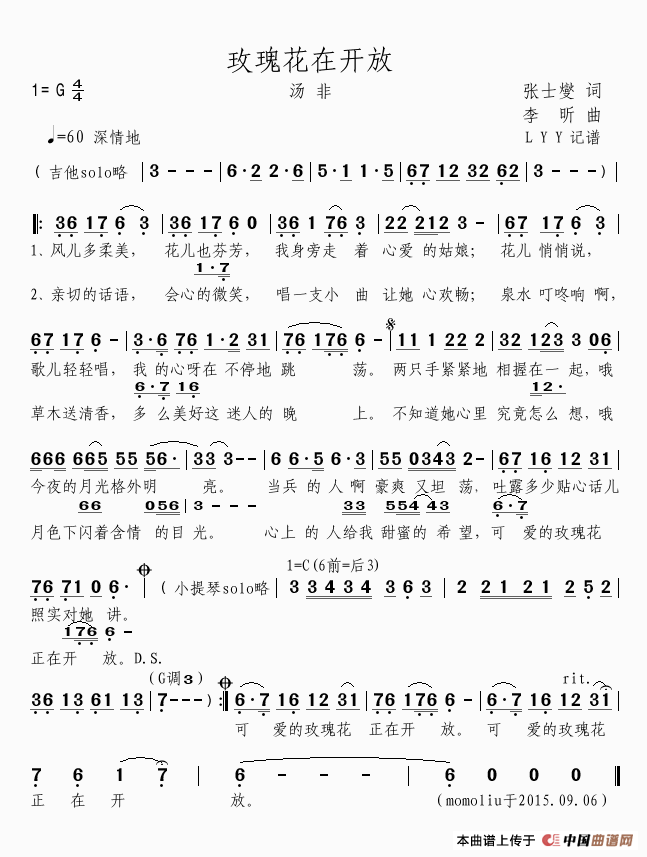 玫瑰花在开放
1= G 4/4 汤 非 张士燮 词
李 昕 曲
♩=60 深情地 L Y Y 记谱
( 吉他solo略 |3 - - -|6·2 2·6|5·1 1·5|67 12 32 62|3 - - -)|
‖: 36 17 6 3 |36 17 6 0 |36 1 76 3 |22 212 3 -|67 17 6 3 |
1、风儿多柔美, 花儿也芬芳, 我身旁走 着 心爱 的姑娘; 花儿 悄悄说,
1·7
2、亲切的话语, 会心的微笑, 唱一支小 曲 让她 心欢畅; 泉水 叮咚响 啊,
67 17 6 -|3·6 76 1·2 31|76 176 6 -|11 1 22 2|32 123 3 06|
歌儿轻轻唱, 我 的心呀在 不停地 跳 荡。 两只手紧紧地 相握在一 起,哦
6·7 16 12·
草木送清香, 多 么美好这 迷人的 晚 上。 不知道她心里 究竟怎么 想,哦
666 665 55 56·|33 3--|6 6·5 6·3|55 0343 2-|67 16 12 31|
今夜的月光格外明 亮。 当兵 的 人 啊 豪爽 又坦 荡, 吐露多少贴心话儿
66 056 3--- 33 555 43 6·7
月色下闪着含情 的目 光。 心上 的 人给我 甜蜜的 希 望,可 爱的玫瑰花
1=C(6前=后3)
76 71 0 6·|( 小提琴solo略|3 34 34 34 3 6 3|2 2 21 2 21 2 5 2|
照实对她 讲。
176 6 -
正在开 放。D.S.
(G调3) rit.
36 13 61 13|7---):‖6·7 16 12 31|76 176 6 -|6·7 16 12 31|
可 爱的玫瑰花 正在开 放。 可 爱的玫瑰花
7 6 1 7 | 6 - - - | 6 0 0 0 ‖
正 在 开 放。 (momoliu于2015.09.06)
本曲谱上传于 中国曲谱网